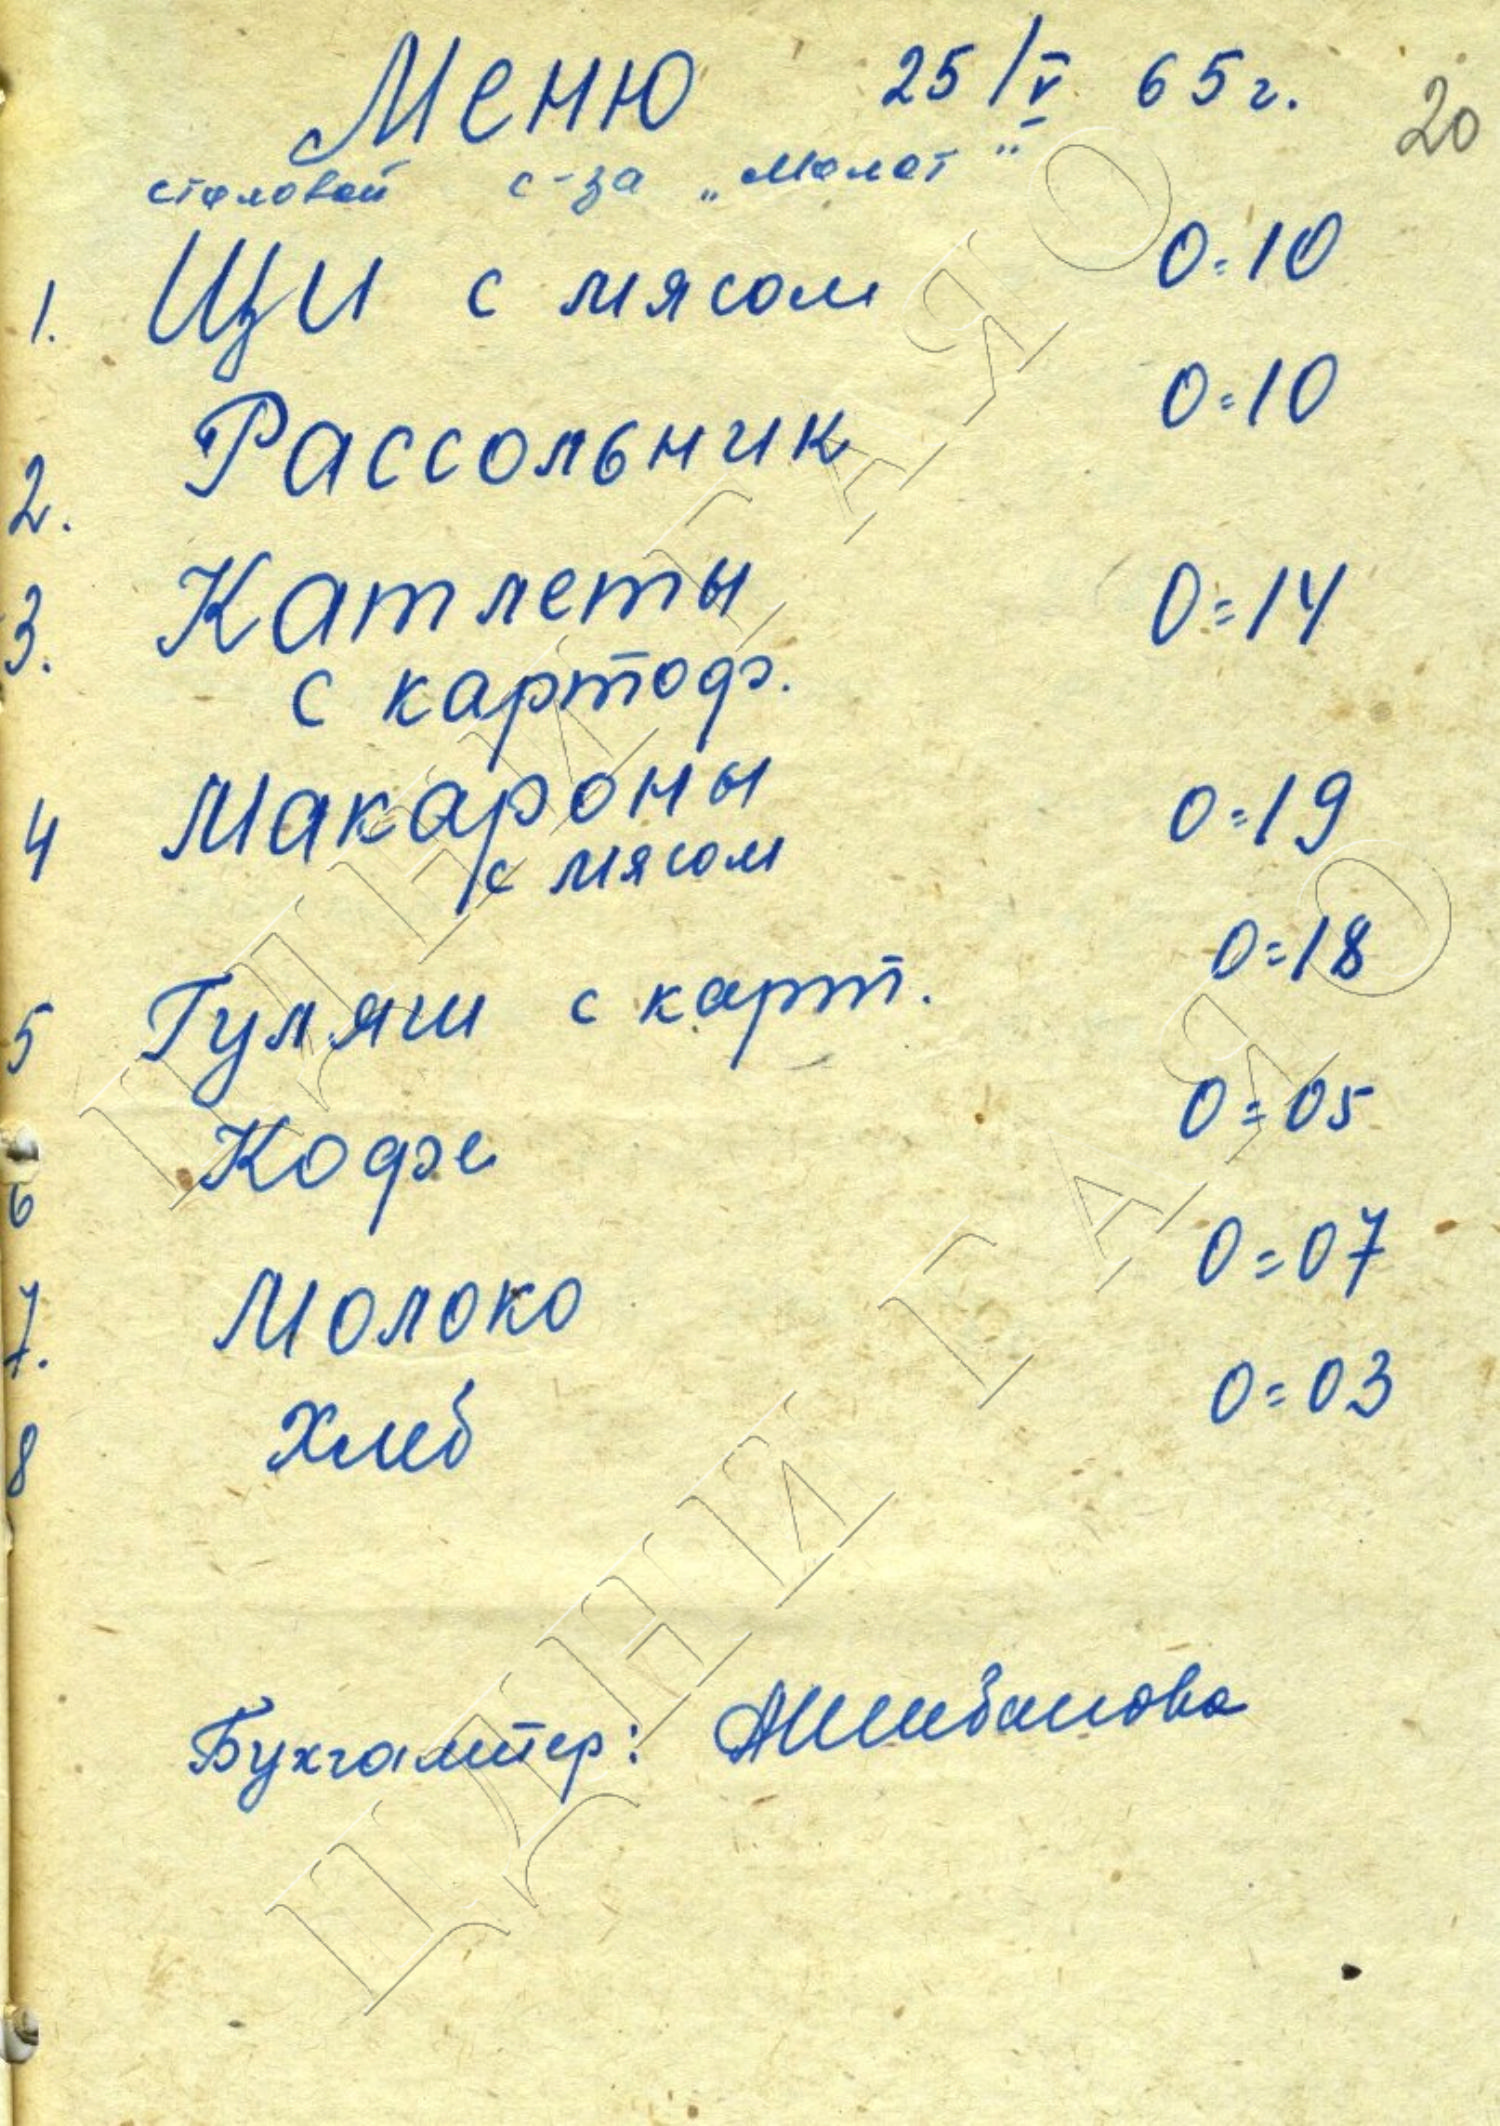 Меню 25/V 65г.
20
столовой с-за „Молот"
1. Щи с мясом 0=10
2. Рассольник 0=10
3. Катлеты 0=14
с картоф.
4 Макароны 0=19
с мясом
5 Гуляш с карт. 0=18
6 Кофе 0=05
7. Молоко 0=07
8 Хлеб 0=03
Бухгалтер: АШибанова
ЦДНИ ГАЯО
ЦДНИ ГАЯО